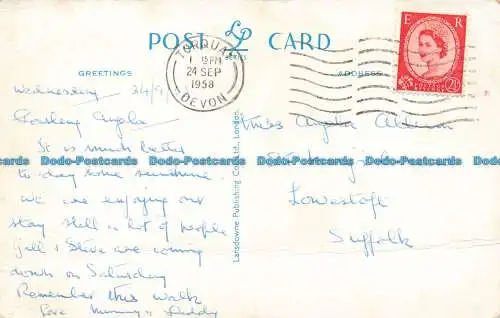 POST LP CARD
SERIES
GREETINGS
ADDRESS
TORQUAY
1 15PM
24 SEP
1958
DEVON
E R
POSTAGE REVENUE
2½D
Wednesday 24/9
Darling Angela
It is much better
to day some sunshine.
We are enjoying our
stay still a lot of people
Gill & Steve are coming
down on Saturday
Remember this walk
Love Mummy & Daddy
Lansdowne Publishing Co., Ltd., London.
Miss Angela
Lowestoft
Suffolk
Dodo-Postcards Dodo-Postcards Dodo-Postcards Dodo-Postcards Dodo-Postcards